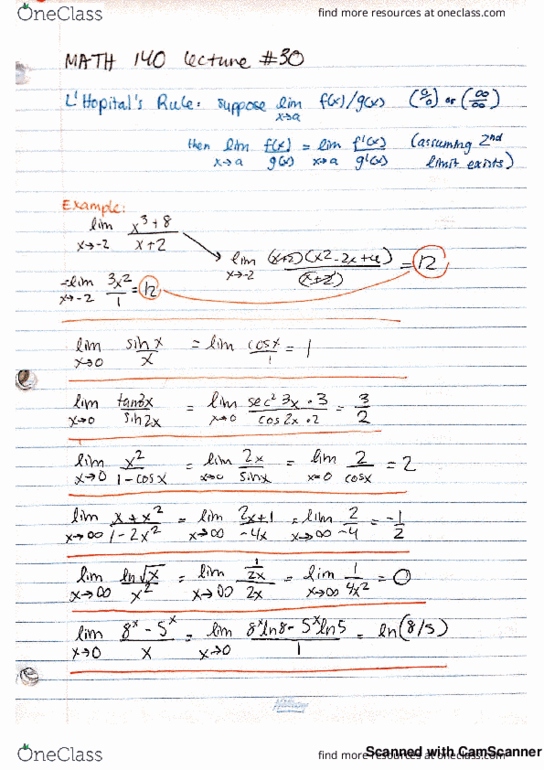 OneClass find more resources at oneclass.com
MATH 140 Lecture #30
L'Hopital's Rule: suppose lim x→a f(x)/g(x) (0/0) or (∞/∞)
then lim x→a f(x)/g(x) = lim x→a f'(x)/g'(x) (assuming 2nd limit exists)
Example:
lim x→-2 (x³+8)/(x+2) → lim x→-2 (x+2)(x²-2x+4)/(x+2) = 12
= lim x→-2 3x²/1 = 12
lim x→0 sin x/x = lim cosx/1 = 1
lim x→0 tan3x/sin2x = lim x→0 sec²3x·3/cos2x·2 = 3/2
lim x→0 x²/1-cosx = lim x→0 2x/sinx = lim x→0 2/cosx = 2
lim x→∞ x+x²/1-2x² = lim x→∞ 2x+1/-4x = lim x→∞ 2/-4 = -1/2
lim x→∞ ln√x/x² = lim x→∞ (1/2x)/2x = lim x→∞ 1/4x² = 0
lim x→0 8ˣ-5ˣ/x = lim x→0 8ˣln8-5ˣln5/1 = ln(8/5)
Scanned with CamScanner
OneClass find more resources at oneclass.com